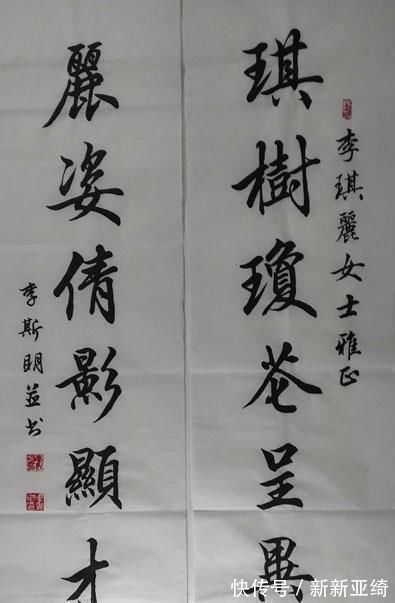 李琪麗女士雅正
琪樹瓊花呈異
麗姿倩影顯才
李斯明並书
快传号/新新亚绮